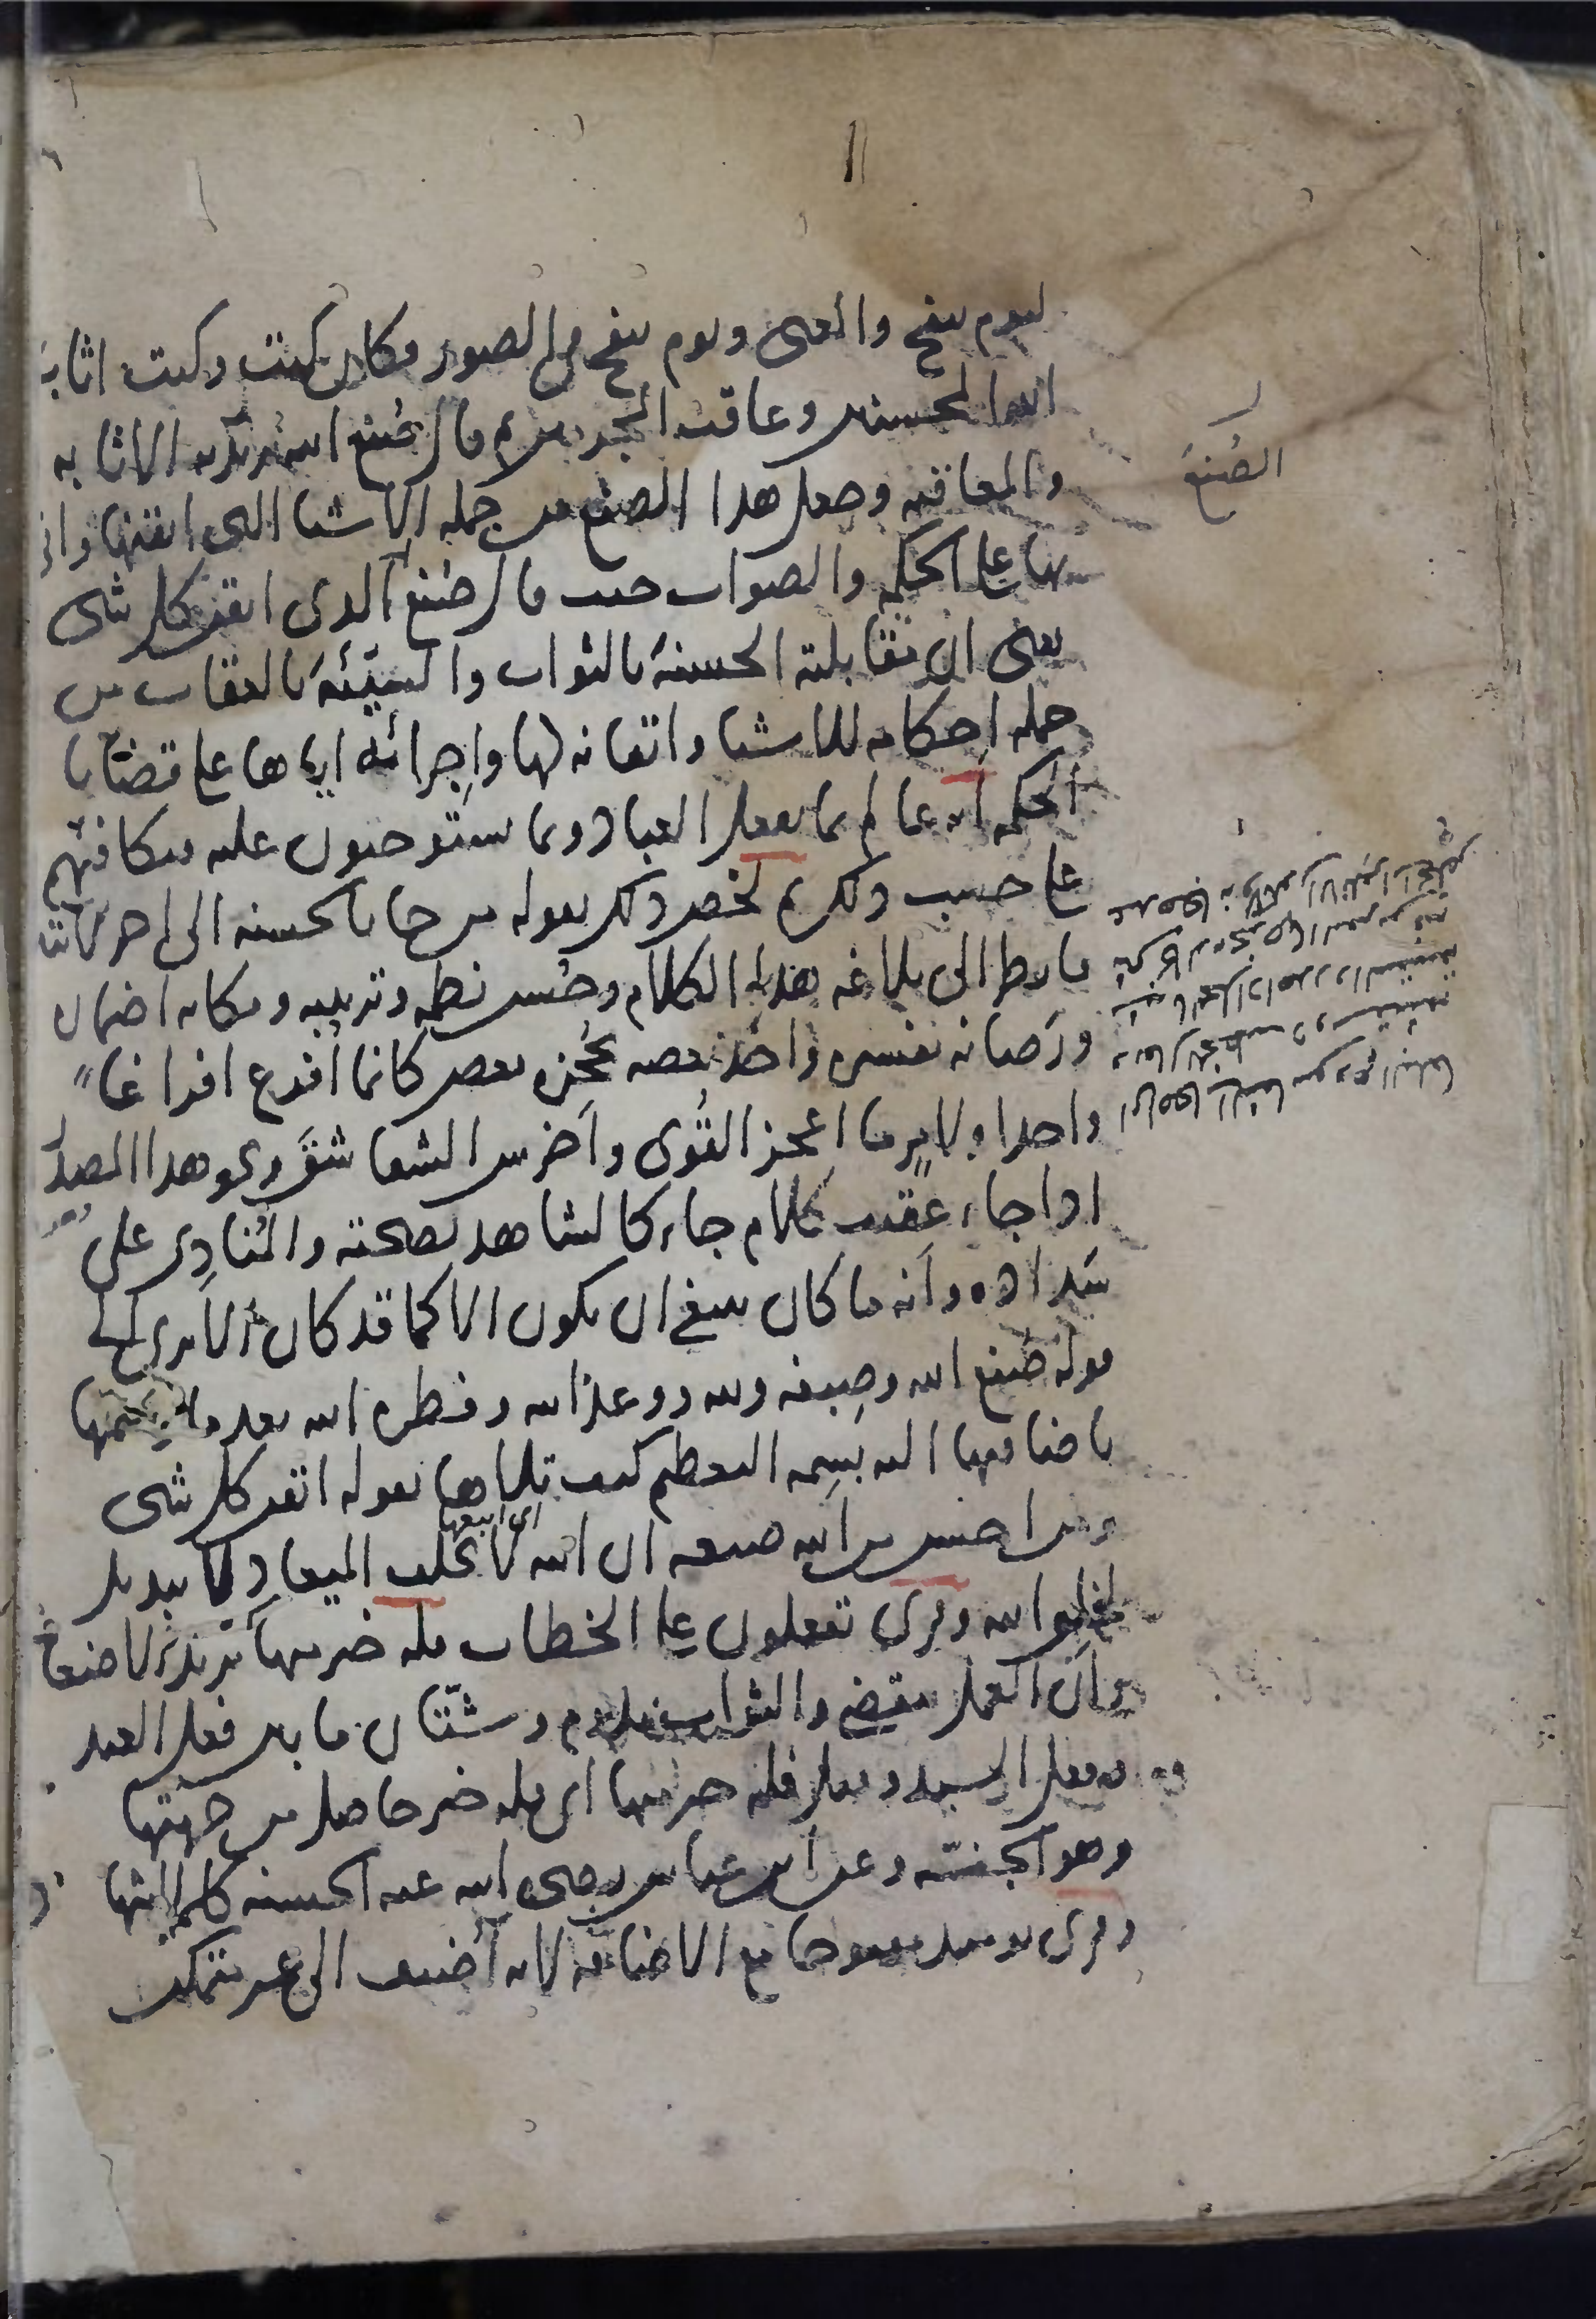 ليوم ينفخ والمعنى ويوم ينفخ في الصور وكان كيت وكيت اثاب
الله المحسنين وعاقب المجرمين ثم قال صنع الله يريد به الاثابه
والمعاقبه وجعل هذا الصنع من جمله الاشيا التي اتقنها واتى
بها على الحكمه والصواب حيث قال صنع الله الذي اتقن كل شي
يعني ان مقابلته الحسنة بالثواب والسيّئة بالعقاب من
جمله احكامه للاشيا واتقانه لها واِجرائه اياها على قضايا
الحكمه انه عالم بما يفعل العباد وبما يستوجبون عليه فيكافئهم
على حسب ذلك ثم لخص ذلك بقوله من جا بالحسنه الى اخر الايتين
فانظر الى بلاغه هذا الكلام وحُسن نظمه وترتيبه ومكانه اضماده
ورَصانه تفسيره واخذ بعضه بحُجزه بعض كانما اُفرغ افراغا
واحدا ولامرٍ ما اعجز القُوى واَخرس الشقاشقَ ونحو هذا المصدر
اذا جاء عقيب كلام جاء كالشاهد بصحته والمُنادِى على
سَداده وانه ما كان ينبغي ان يكون الا كما قد كان الا ترى الى
قوله صُنع الله وصِبغه الله ووعد الله وفطره الله بعد ما وسمها
باضافتها اليه بِسِمه التعظيم كيف تلاها بقوله اتقن كل شي
اي اتبعها
ومن احسن من الله صبغه ان الله لا يخلف الميعاد لا تبديل
لخلق الله وقرى تفعلون على الخطاب فله خير منها يريد الاضعاف
وانّ العمل يتقضى والثواب يدوم وشتّان ما بين فعل العبد
وفعل السيد وقيل فله خير منها اي فله خير حاصل من جهتها
وهو الجنّة وعن ابن عباس رضى الله عنه الحسنه كلمه الشهاده
وقرى يومئذ مفتوحا مع الاضافه لانه اُضيف الى غير متمكن
الصُنعَ